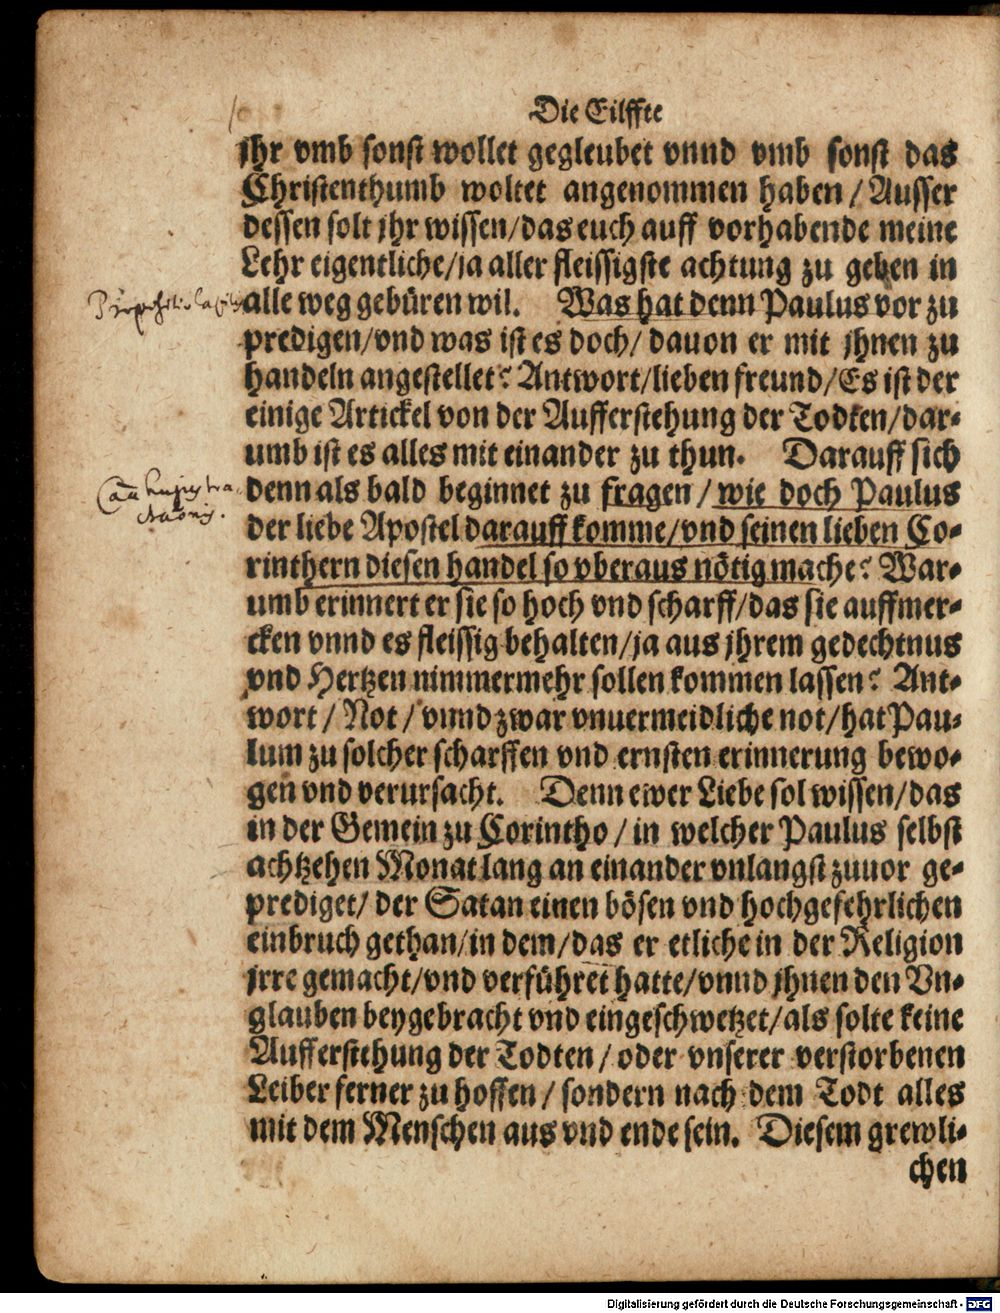 Die Eilffte
jhr vmb sonst wollet gegleubet vnnd vmb sonst das
Christenthumb woltet angenommen haben / Ausser
dessen solt jhr wissen/das euch auff vorhabende meine
Lehr eigentliche/ja aller fleissigste achtung zu geben in
alle weg gebüren wil. Was hat denn Paulus vor zu
predigen/vnd was ist es doch/ dauon er mit jhnen zu
handeln angestellet? Antwort/lieben freund/Es ist der
einige Artickel von der Aufferstehung der Todten/dar-
umb ist es alles mit einander zu thun. Darauff sich
denn als bald beginnet zu fragen / wie doch Paulus
der liebe Apostel darauff komme/vnd seinen lieben Co-
rinthern diesen handel so vberaus nötig mache? War-
umb erinnert er sie so hoch vnd scharff/das sie auffmer-
cken vnnd es fleissig behalten/ja aus jhrem gedechtnus
vnd Hertzen nimmermehr sollen kommen lassen? Ant-
wort / Not / vnnd zwar vnuermeidliche not/hat Pau-
lum zu solcher scharffen vnd ernsten erinnerung bewo-
gen vnd verursacht. Denn ewer Liebe sol wissen/das
in der Gemein zu Corintho / in welcher Paulus selbst
achtzehen Monat lang an einander vnlangst zuuor ge-
prediget/ der Satan einen bösen vnd hochgefehrlichen
einbruch gethan/in dem/das er etliche in der Religion
jrre gemacht/vnd verführet hatte/vnnd jhnen den Vn-
glauben beygebracht vnd eingeschwetzet/als solte keine
Aufferstehung der Todten / oder vnserer verstorbenen
Leiber ferner zu hoffen / sondern nach dem Todt alles
mit dem Menschen aus vnd ende sein. Diesem grewli-
chen
Digitalisierung gefördert durch die Deutsche Forschungsgemeinschaft - DFG